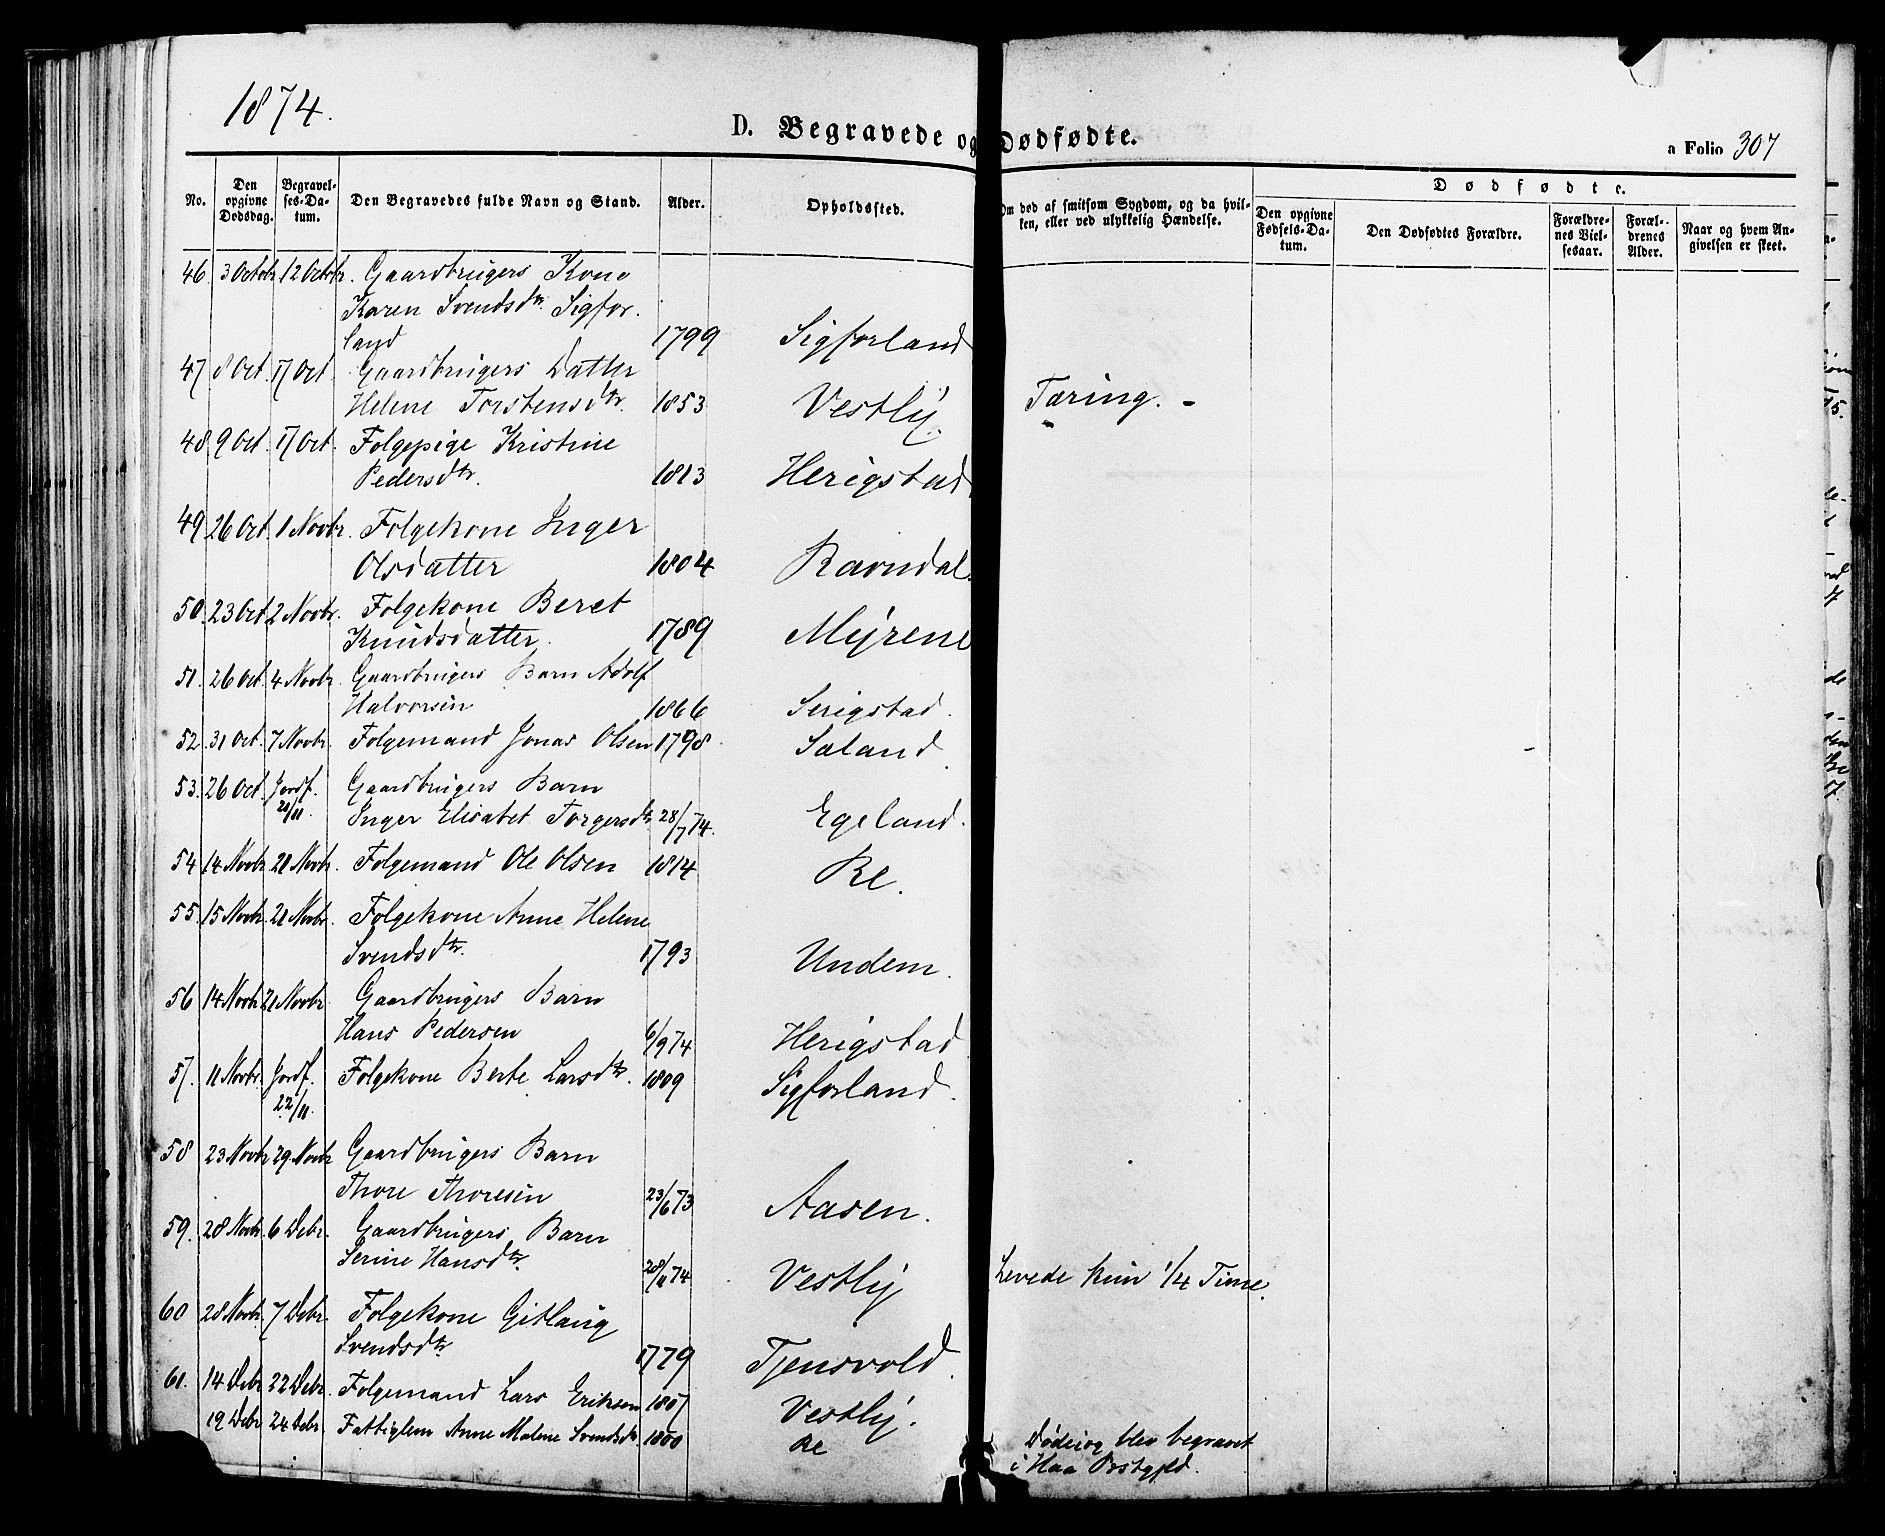 1874.
D. Begravede og Dødfødte.
a Folio 307
No. Den opgivne Dødsdag. Begravelses-Datum. Den Begravedes fulde Navn og Stand. Alder. Opholdssted. Om død af smitsom Sygdom, og da hvilken, eller ved ulykkelig Hændelse. Dødfødte.
Den opgivne Fødsels-Datum. Den Dødfødtes Forældre. Forældrenes Vielsesaar. Forældrenes Alder. Naar og hvem Angivelsen er skeet.
46. 3 Octobr 12 Octobr. Gaardbrugers Kone
Karen Svendsdtr. Sigfor-
land 1799 Sigforland
47 8 Oct. 17 Oct. Gaardbrugers Datter
Helene Torstensdtr. 1853 Vestly. Tæring. -
48 9 Oct. 17 Oct. Folgepige Kristine
Pedersdtr. 1813 Herigstad
49 26 Oct. 1 Novbr. Folgekone Inger
Olsdatter 1804 Ravndal.
50. 23 Oct. 2 Novbr. Folgekone Beret
Knudsdatter. 1789 Myrene
51. 26 Oct. 4 Novbr. Gaardbrugers Barn Adolf
Halvorsen 1866 Serigstad.
52. 31 Oct. 7 Novbr. Folgemand Jonas Olsen 1798 Sæland.
53. 26 Oct. Jordf. Gaardbrugers Barn
21/11. Inger Elisabet Torgersdtr. 28/7 74. Egeland.
54 14 Novbr 21 Novbr. Folgemand Ole Olsen 1814 Re.
55. 15 Novbr. 21 Novbr. Folgekone Anne Helene
Svendsdtr. 1793 Undem.
56 14 Novbr 21 Novbr. Gaardbrugers Barn
Hans Pedersen 6/9 74 Herigstad
57. 11 Novbr. Jordf. Folgekone Berte Larsdtr. 1809 Sigforland.
22/11.
58 23 Novbr 29 Novbr Gaardbrugers Barn
Thore Thoresen 23/6 73 Aasen.
59. 28 Novbr. 6 Debr. Gaardbrugers Barn
Serine Hansdtr. 28/11 74 Vestly Levede kun 1/4 Time.
60 28 Novbr. 7 Debr. Folgekone Gitlaug
Svendsdtr. 1779 Tjensvold.
61. 14 Debr 22 Debr. Folgemand Lars Eriksen 1807 Vestly.
19 Debr 24 Debr. Fattiglem Anne Malene Svendsdtr. 1800 Re Døde og blev begravet
i Haa Prstgjeld.